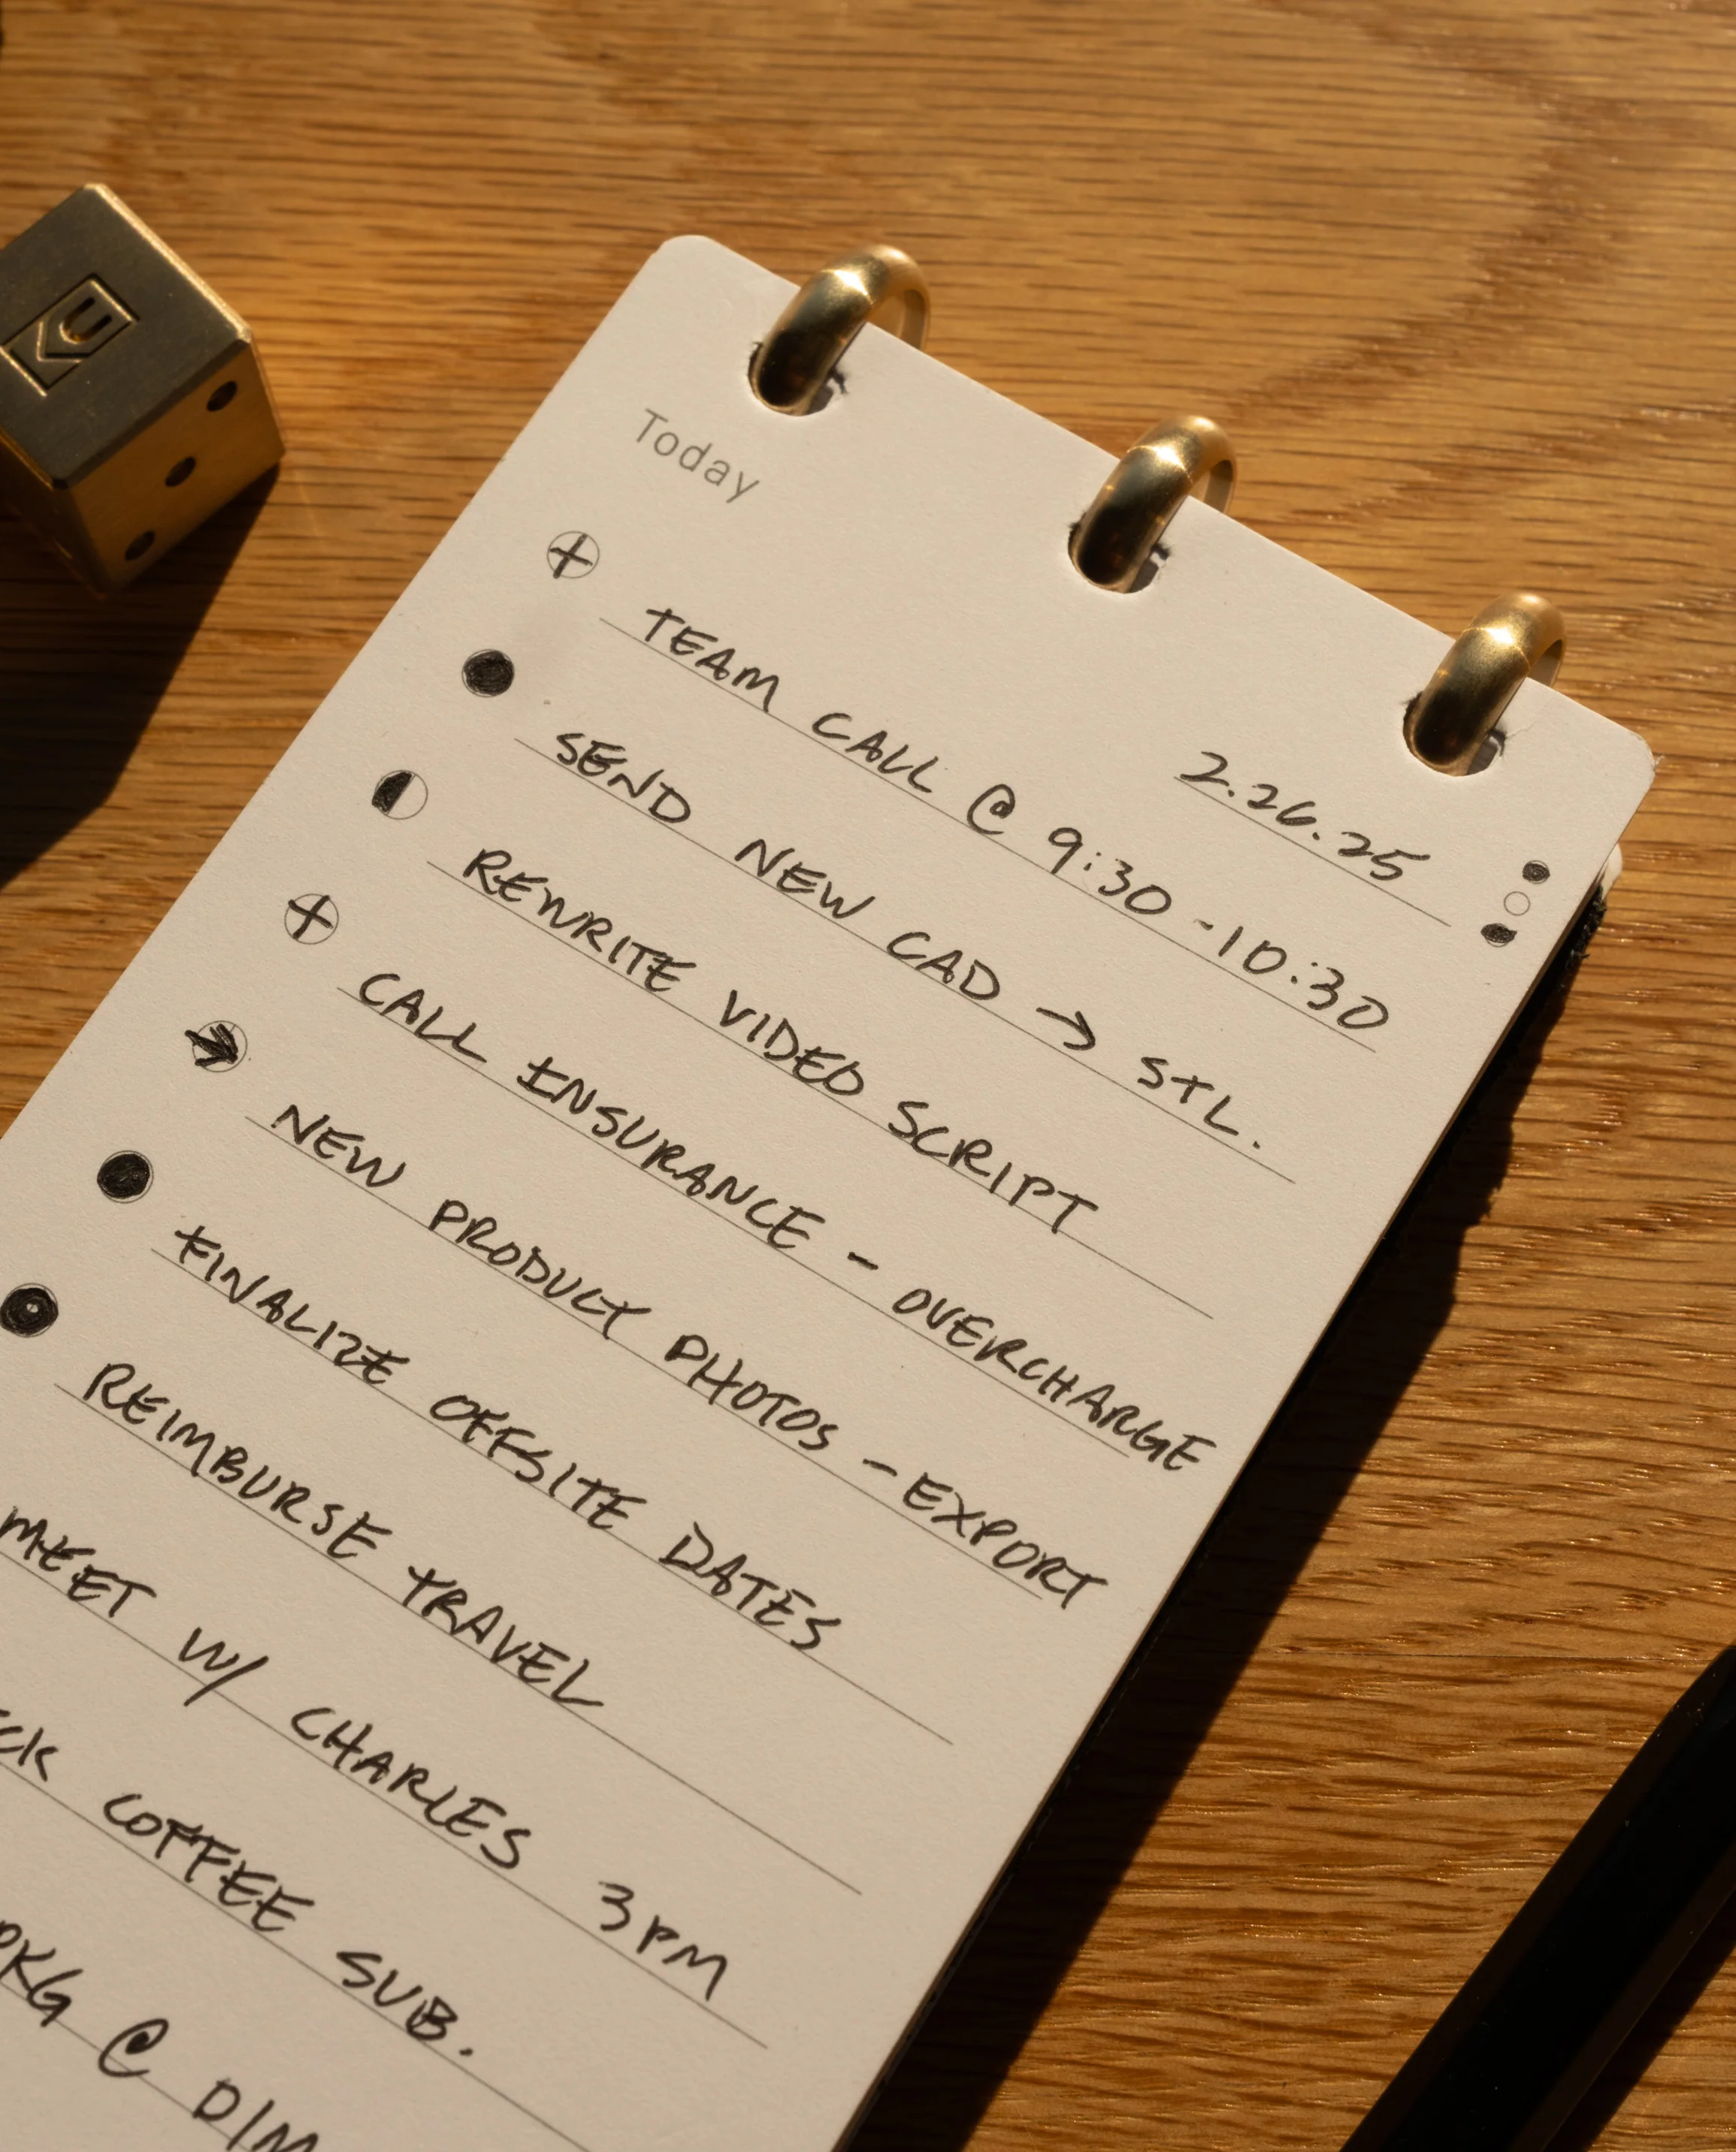 Today
2.26.25
TEAM CALL @ 9:30 - 10:30
SEND NEW CAD → STL.
REWRITE VIDEO SCRIPT
CALL INSURANCE - OVERCHARGE
NEW PRODUCT PHOTOS - EXPORT
FINALIZE OFFSITE DATES
REIMBURSE TRAVEL
MEET W/ CHARLES 3PM
COFFEE SUB.
PKG @